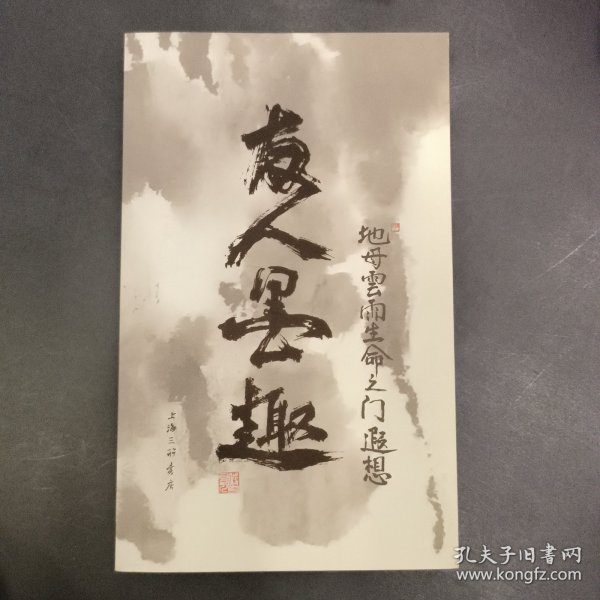 友人墨趣
地母雲雨生命之门遐想
上海三联书店
孔夫子旧书网
www.kongfz.com